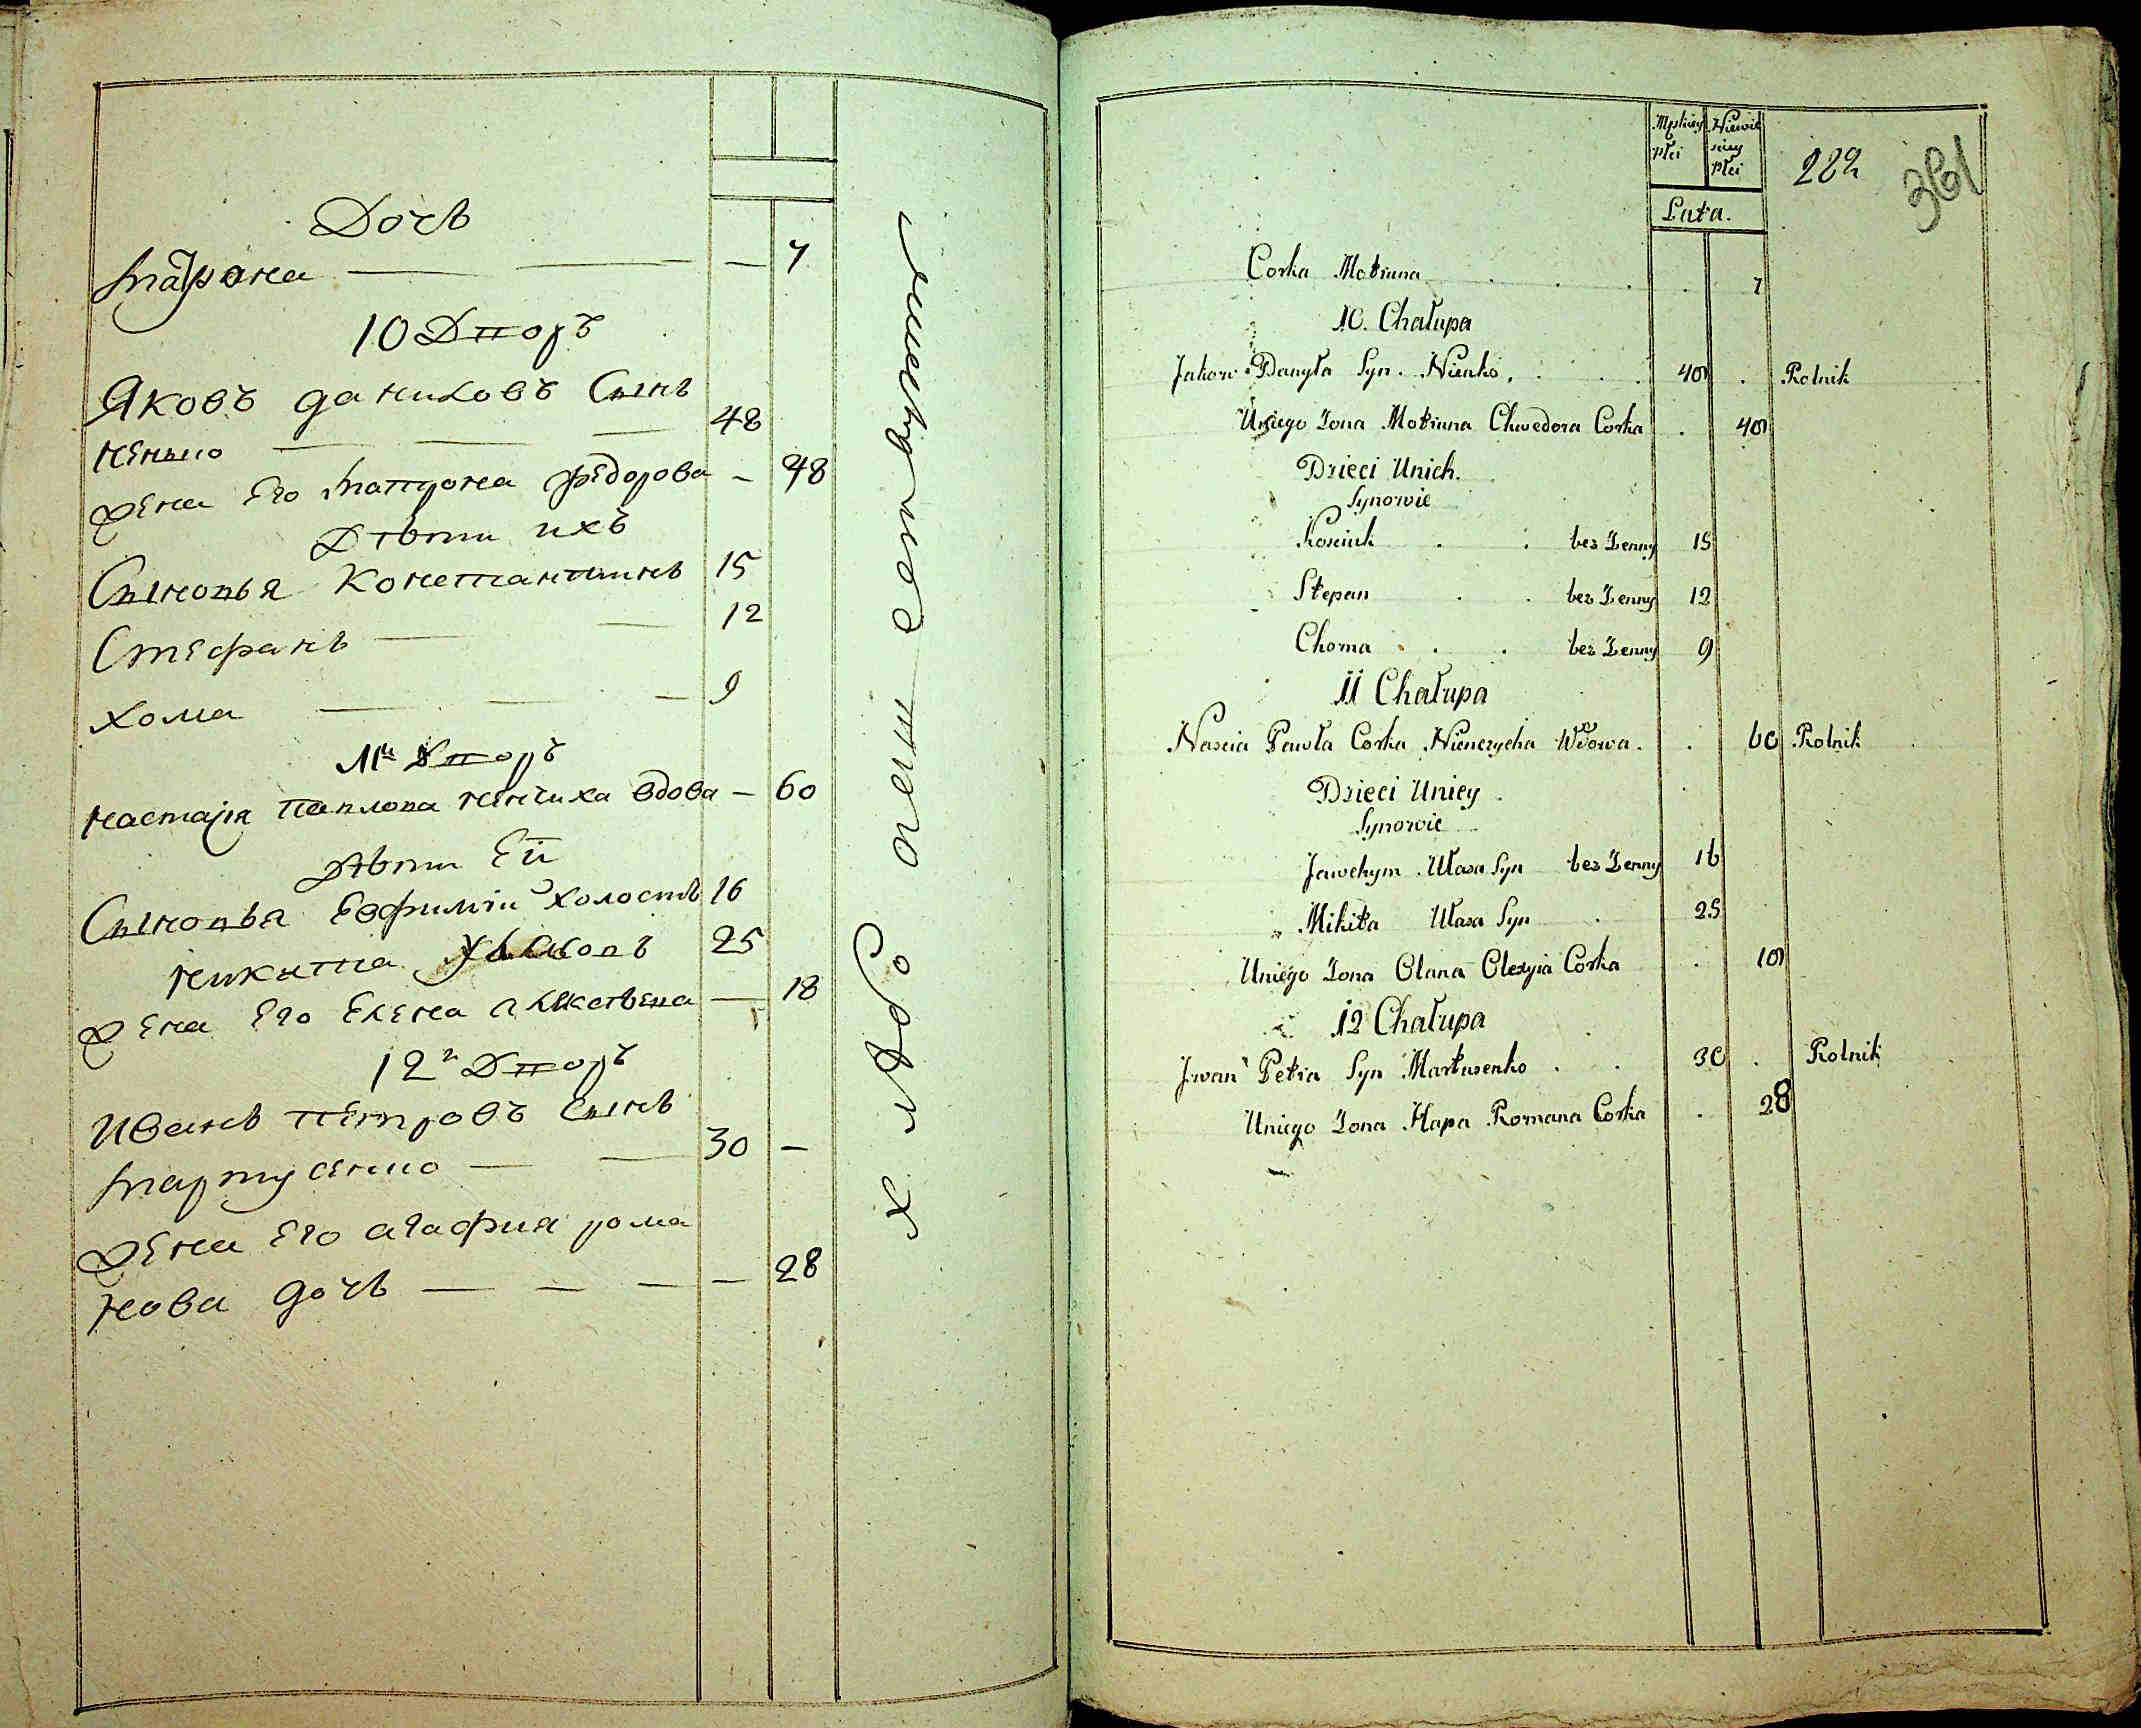 Дочь
Матрона — — — 7
10 Дворъ
Яковъ Даниловъ Сынъ
Ненько — — — 48
Жена Его Матрона Федорова — 48
Дѣти ихъ
Сыновья Константинъ 15
Стефанъ — — 12
Хома — — — 9
11й Дворъ
Настасія Павлова Ненчиха вдова — 60
Дѣти Еи
Сыновья Евфимій холостъ 16
Никита 25
Жена Его Елена Алексѣева — 18
12й Дворъ
Иванъ Петровъ Сынъ
Мартусенко — — 30 —
Жена Его Агафия Рома
нова дочь — — — — 28
хлѣбопашествуетъ
Męskiey Płci
Niewieściey Płci
Lata.
282
361
Corka Motruna . . . . 7
10. Chałupa
Jakow Danyła Syn Nienko . . . 48 . Rolnik
Uniego Żona Motruna Chwedora Corka . 48
Dzieci Unich.
Synowie
Kosciuk . . bez Żenny 15
Stepan . . bez Żenny 12
Choma . . bez Żenny 9
11 Chałupa
Nascia Pawła Corka Nienczycha Wdowa . . 60 Rolnik
Dzieci Uniey
Synowie
Jawchym Własa Syn bez Żenny 16
Mikita Własa Syn . 25
Uniego Żona Olana Olexyia Corka . 18
12 Chałupa
Jwan Petra Syn Martusenko . . 30 . Rolnik
Uniego Żona Hapa Romana Corka . 28